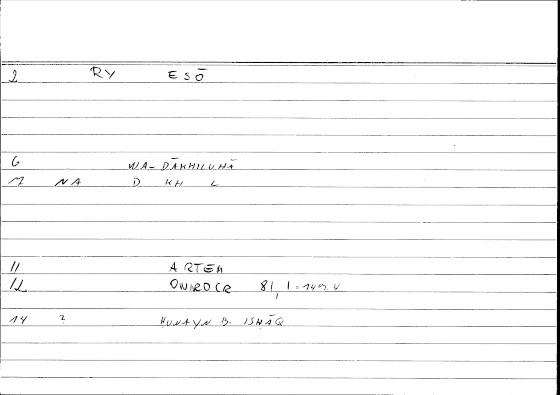 2 RY ESŌ
6 WA-DĀKHILUHĀ
M NA D KH L
11 ARTEM
12 81,1 = 149.V
14 ? ḤUNAYN B. ISḤĀQ